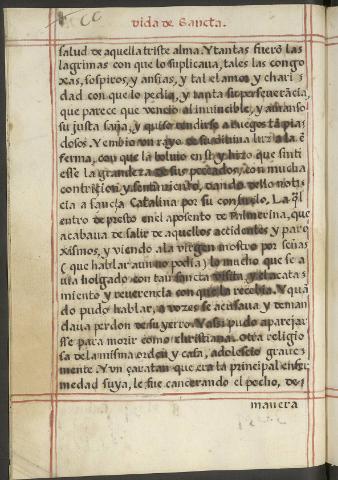 vida de Sancta.
salud de aquella triste alma. Y tantas fuerō las
lagrimas con que lo suplicaua, tales las congo
xas, sospiros, y ansias, y tal el amor y chari
dad con que lo pedia, y tanta su perseuerācia,
que parece que vencio al inuincible, y amanso
su justa saña, y quiso rendirse a ruegos tā pia
dosos. Y embio vn rayo de su diuina luz a la ē
ferma, con que la boluio en si, y hizo que sinti
esse la grandeza de sus peccados, con mucha
contriction y sentimiento, dando dello noti
cia a sancta Catalina por su consuelo. La q̄l
entro de presto en el aposento de Palmerina, que
acabaua de salir de aquellos accidentes y paro
xismos, y viendo a la virgen mostro por señas
(que hablar aun no podia) lo mucho que se a
uia holgado con tan sancta visita, y el acata
miento y reuerencia con que la recebia. Y quā
do pudo hablar, a vozes se acusaua y deman
daua perdon de su yerro. Y assi pudo aparejar
sse para morir como christiana. Otra religio
sa de la misma orden y casa, adolescio graue
mente Y vn çaratan que era la principal enfer
medad suya, le fue cancerando el pecho, de
manera